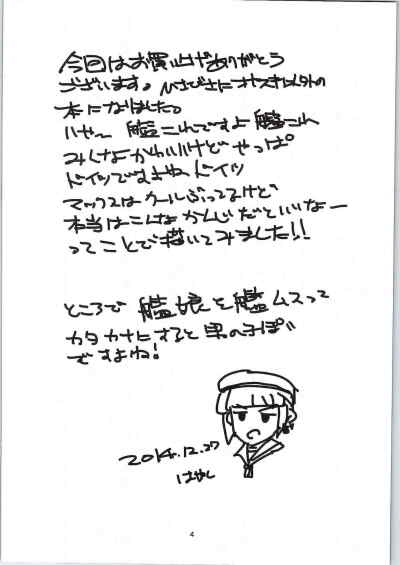 今回はお買い上げありがとう
ございます。ひさびさにオリスオリ以外の
本になりました。
いやー 艦これですよ艦これ
みんなかわいいけどやっぱ
ドイツですよね、ドイツ
マックスはクールぶってるけど
本当はこんなかんじだといいなー
ってことで描いてみました!!
ところで艦娘を艦ムスって
カタカナにすると男の子ぽい
ですよね!
2014.12.27
はやし
4